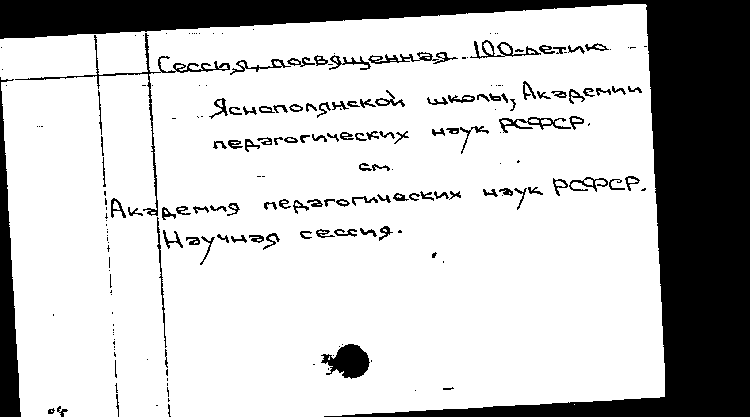 Сессия, посвященная 100-летию
Яснополянской школы, Академии
педагогических наук РСФСР.
см.
Академия педагогических наук РСФСР.
Научная сессия.